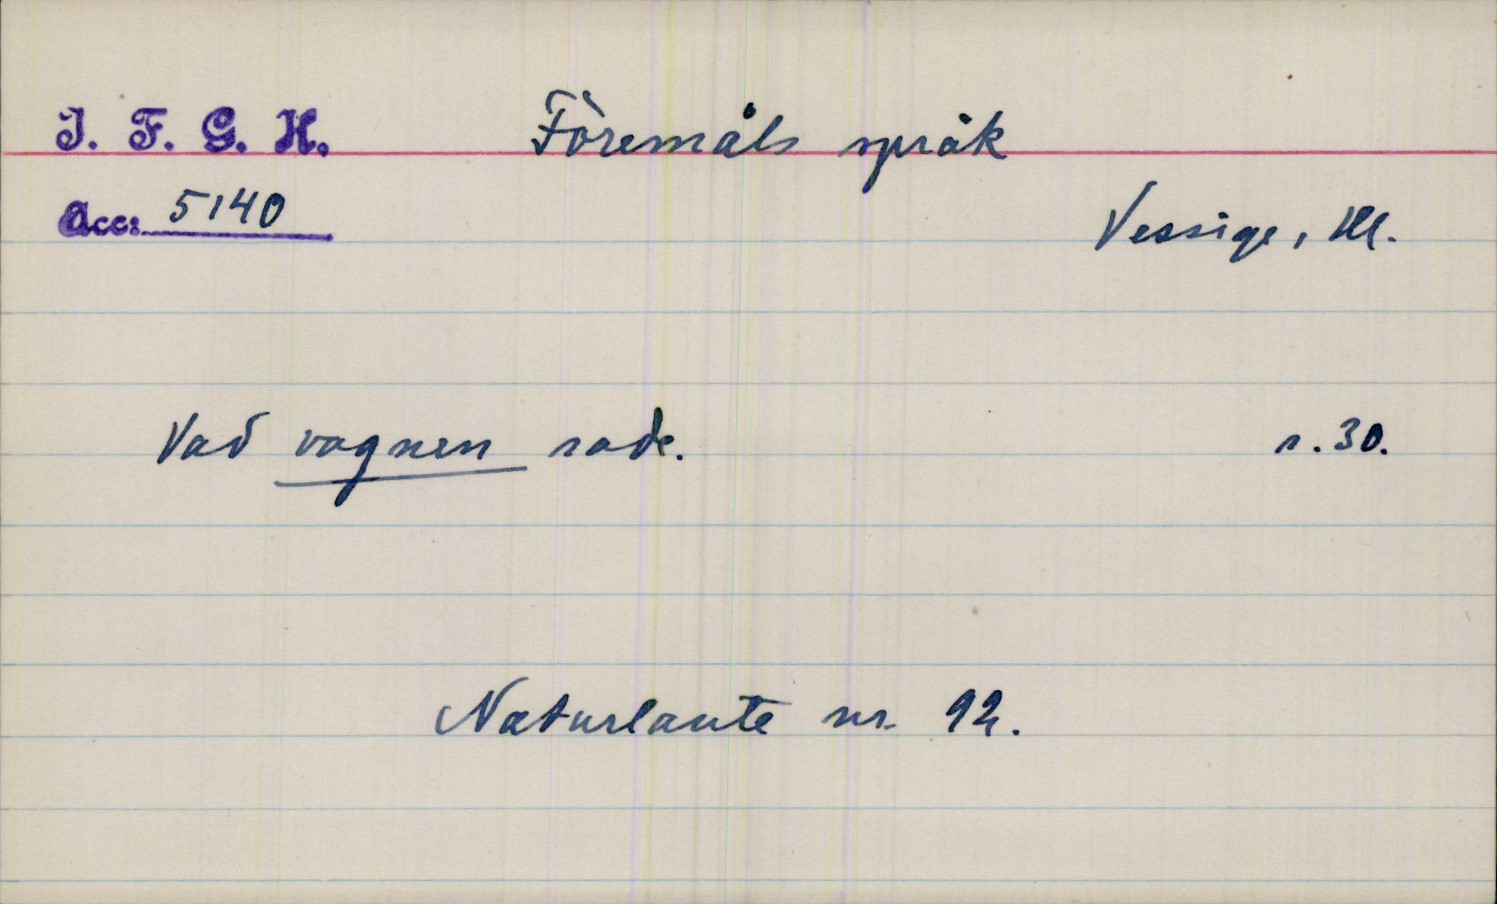 I. F. G. H. Föremåls språk
Acc: 5140
Vessige, Hl.
Vad vagnen sade. s. 30.
Naturlaute nr. 92.